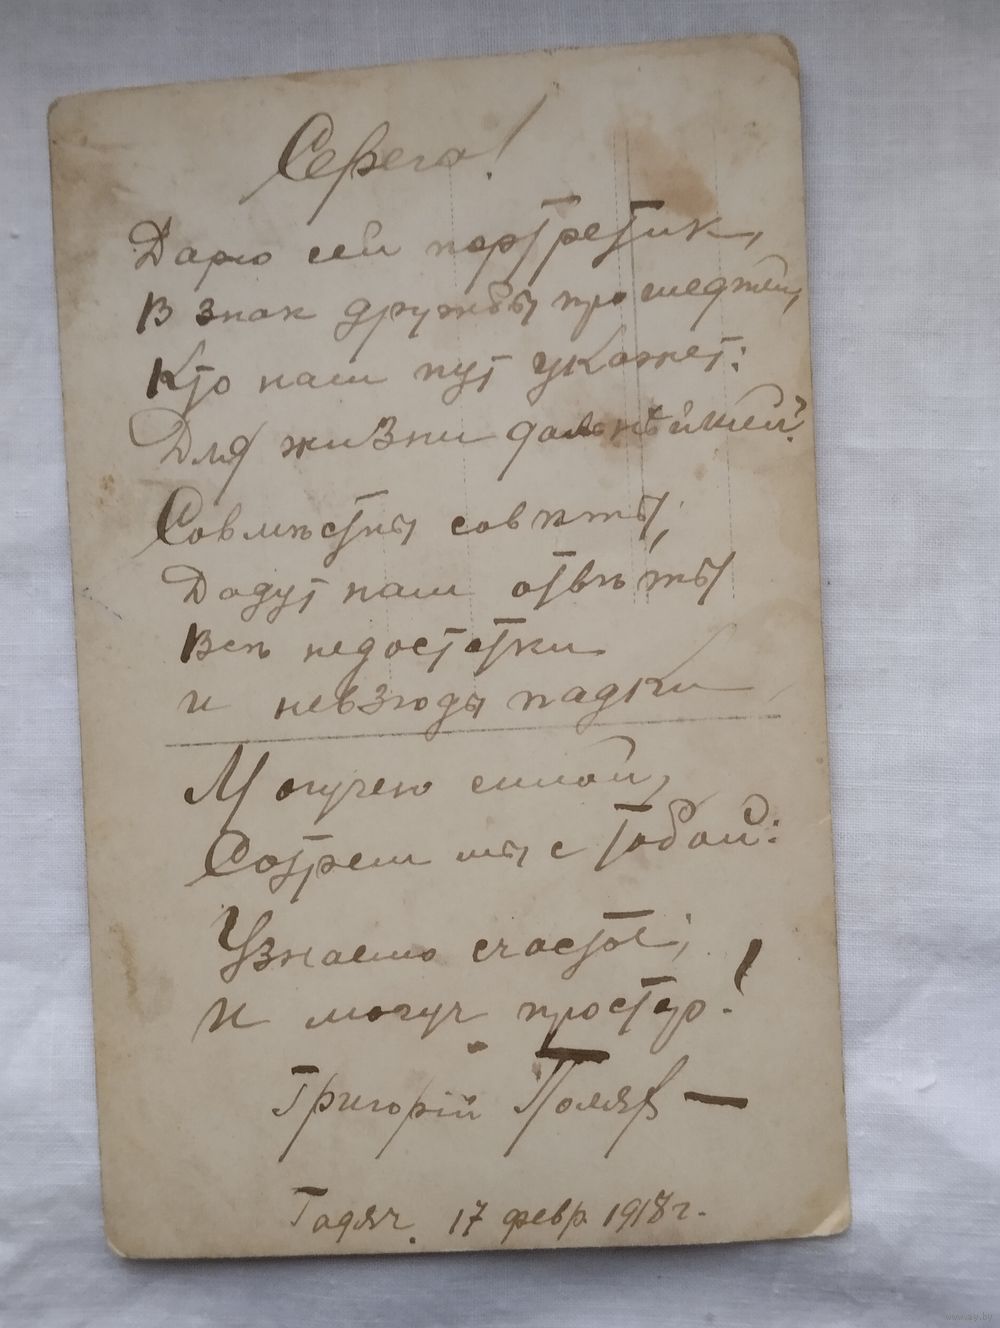 Серега!
Дарю сей портретик,
В знак дружбы прошедшей,
Кто нам пут укажет:
Для жизни дальнѣйшей?
Совмѣстны совѣты,
Дадут нам отвѣты
Всѣ недостатки
и невзгоды падки
Могучею силой,
Сотрем мы с тобой:
Узнаем счастье,
И могуч простор!
Григорій
Гадяч. 17 февр. 1918 г.
www.ay.by